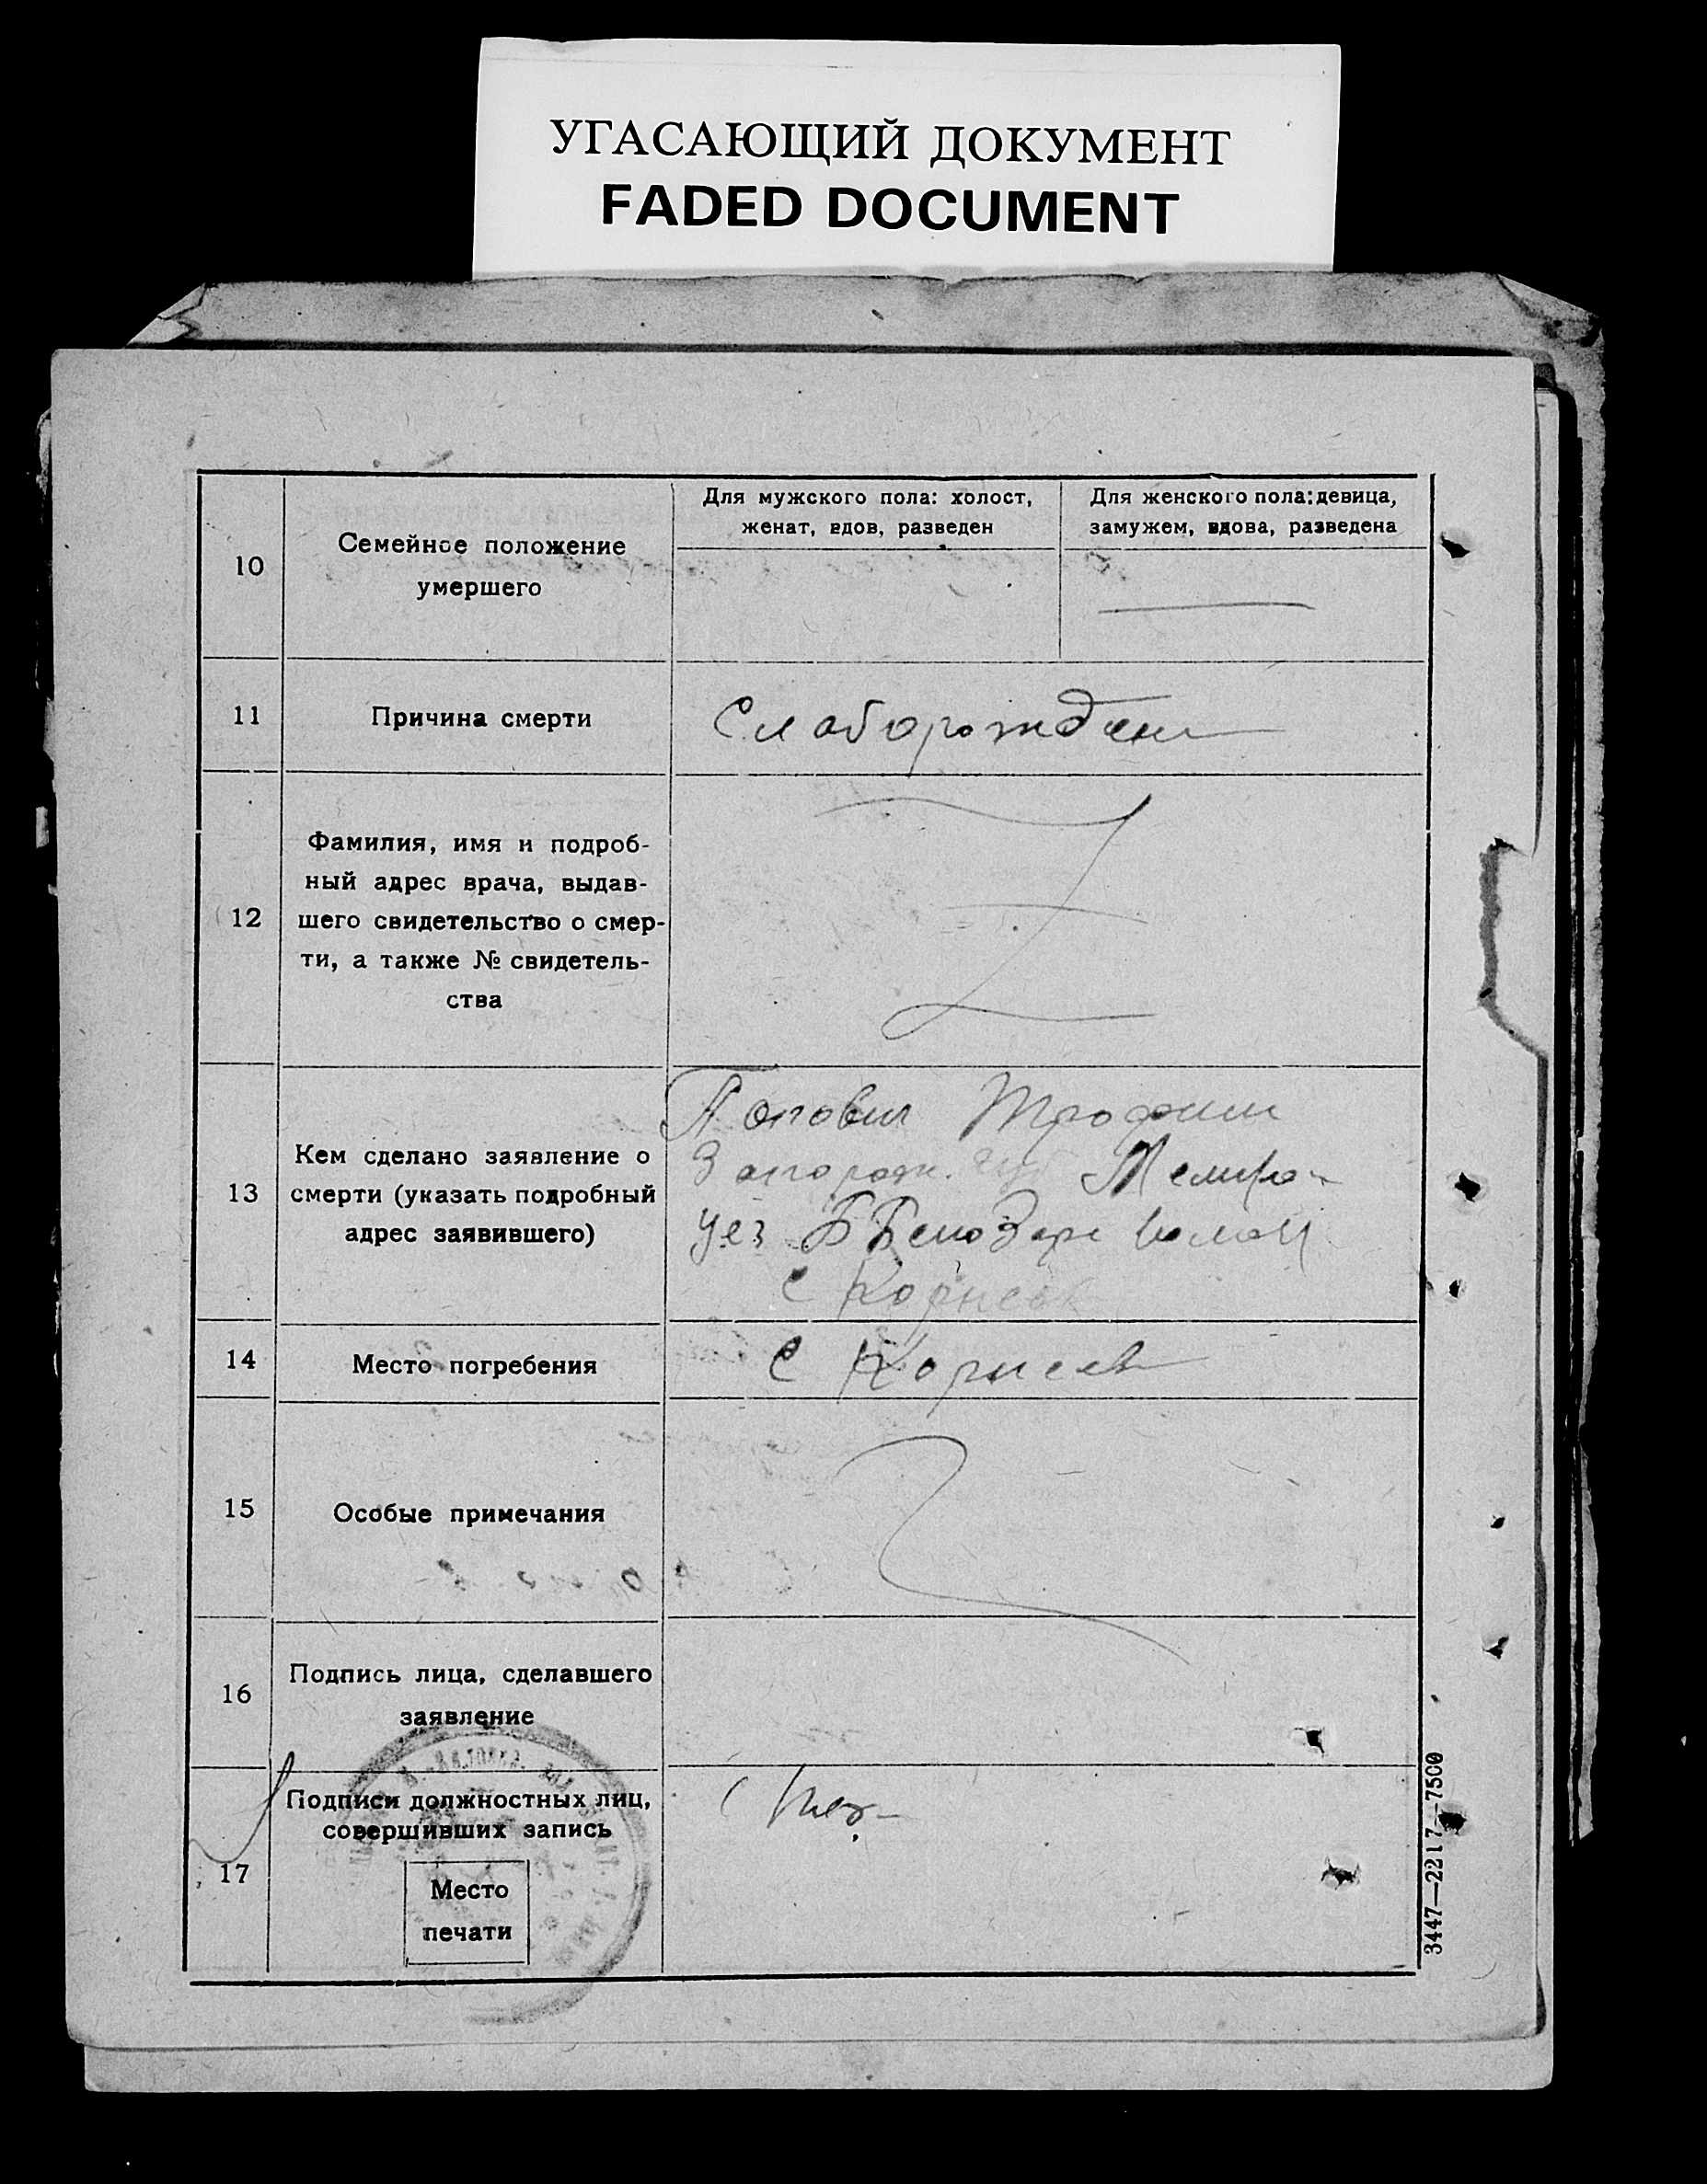 УГАСАЮЩИЙ ДОКУМЕНТ
FADED DOCUMENT
10
Семейное положение
умершего
Для мужского пола: холост,
женат, вдов, разведен
Для женского пола: девица,
замужем, вдова, разведена
11
Причина смерти
Слаборожден
12
Фамилия, имя и подроб-
ный адрес врача, выдав-
шего свидетельство о смер-
ти, а также № свидетель-
ства
13
Кем сделано заявление о
смерти (указать подробный
адрес заявившего)
Попович Трофим
Запорож. губ Мелито-
уез Б Белозер волос
с
14
Место погребения
с
15
Особые примечания
16
Подпись лица, сделавшего
заявление
17
Подписи должностных лиц,
совершивших запись
Место
печати
3447—2217—7500